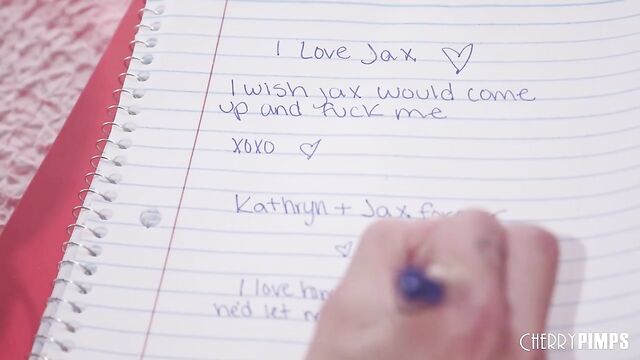 I Love Jax
I wish jax would come
up and fuck me
XOXO
Kathryn + Jax
I love
he'd let
CHERRYPIMPS